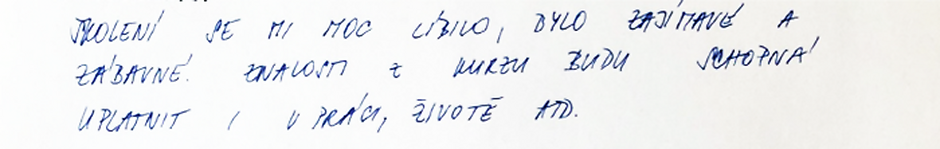 ŠKOLENÍ SE MI MOC LÍBILO, BYLO ZAJÍMAVÉ A
ZÁBAVNÉ. ZNALOSTI Z KURZU BUDU SCHOPNÁ
UPLATNIT I V PRÁCI, ŽIVOTĚ ATD.